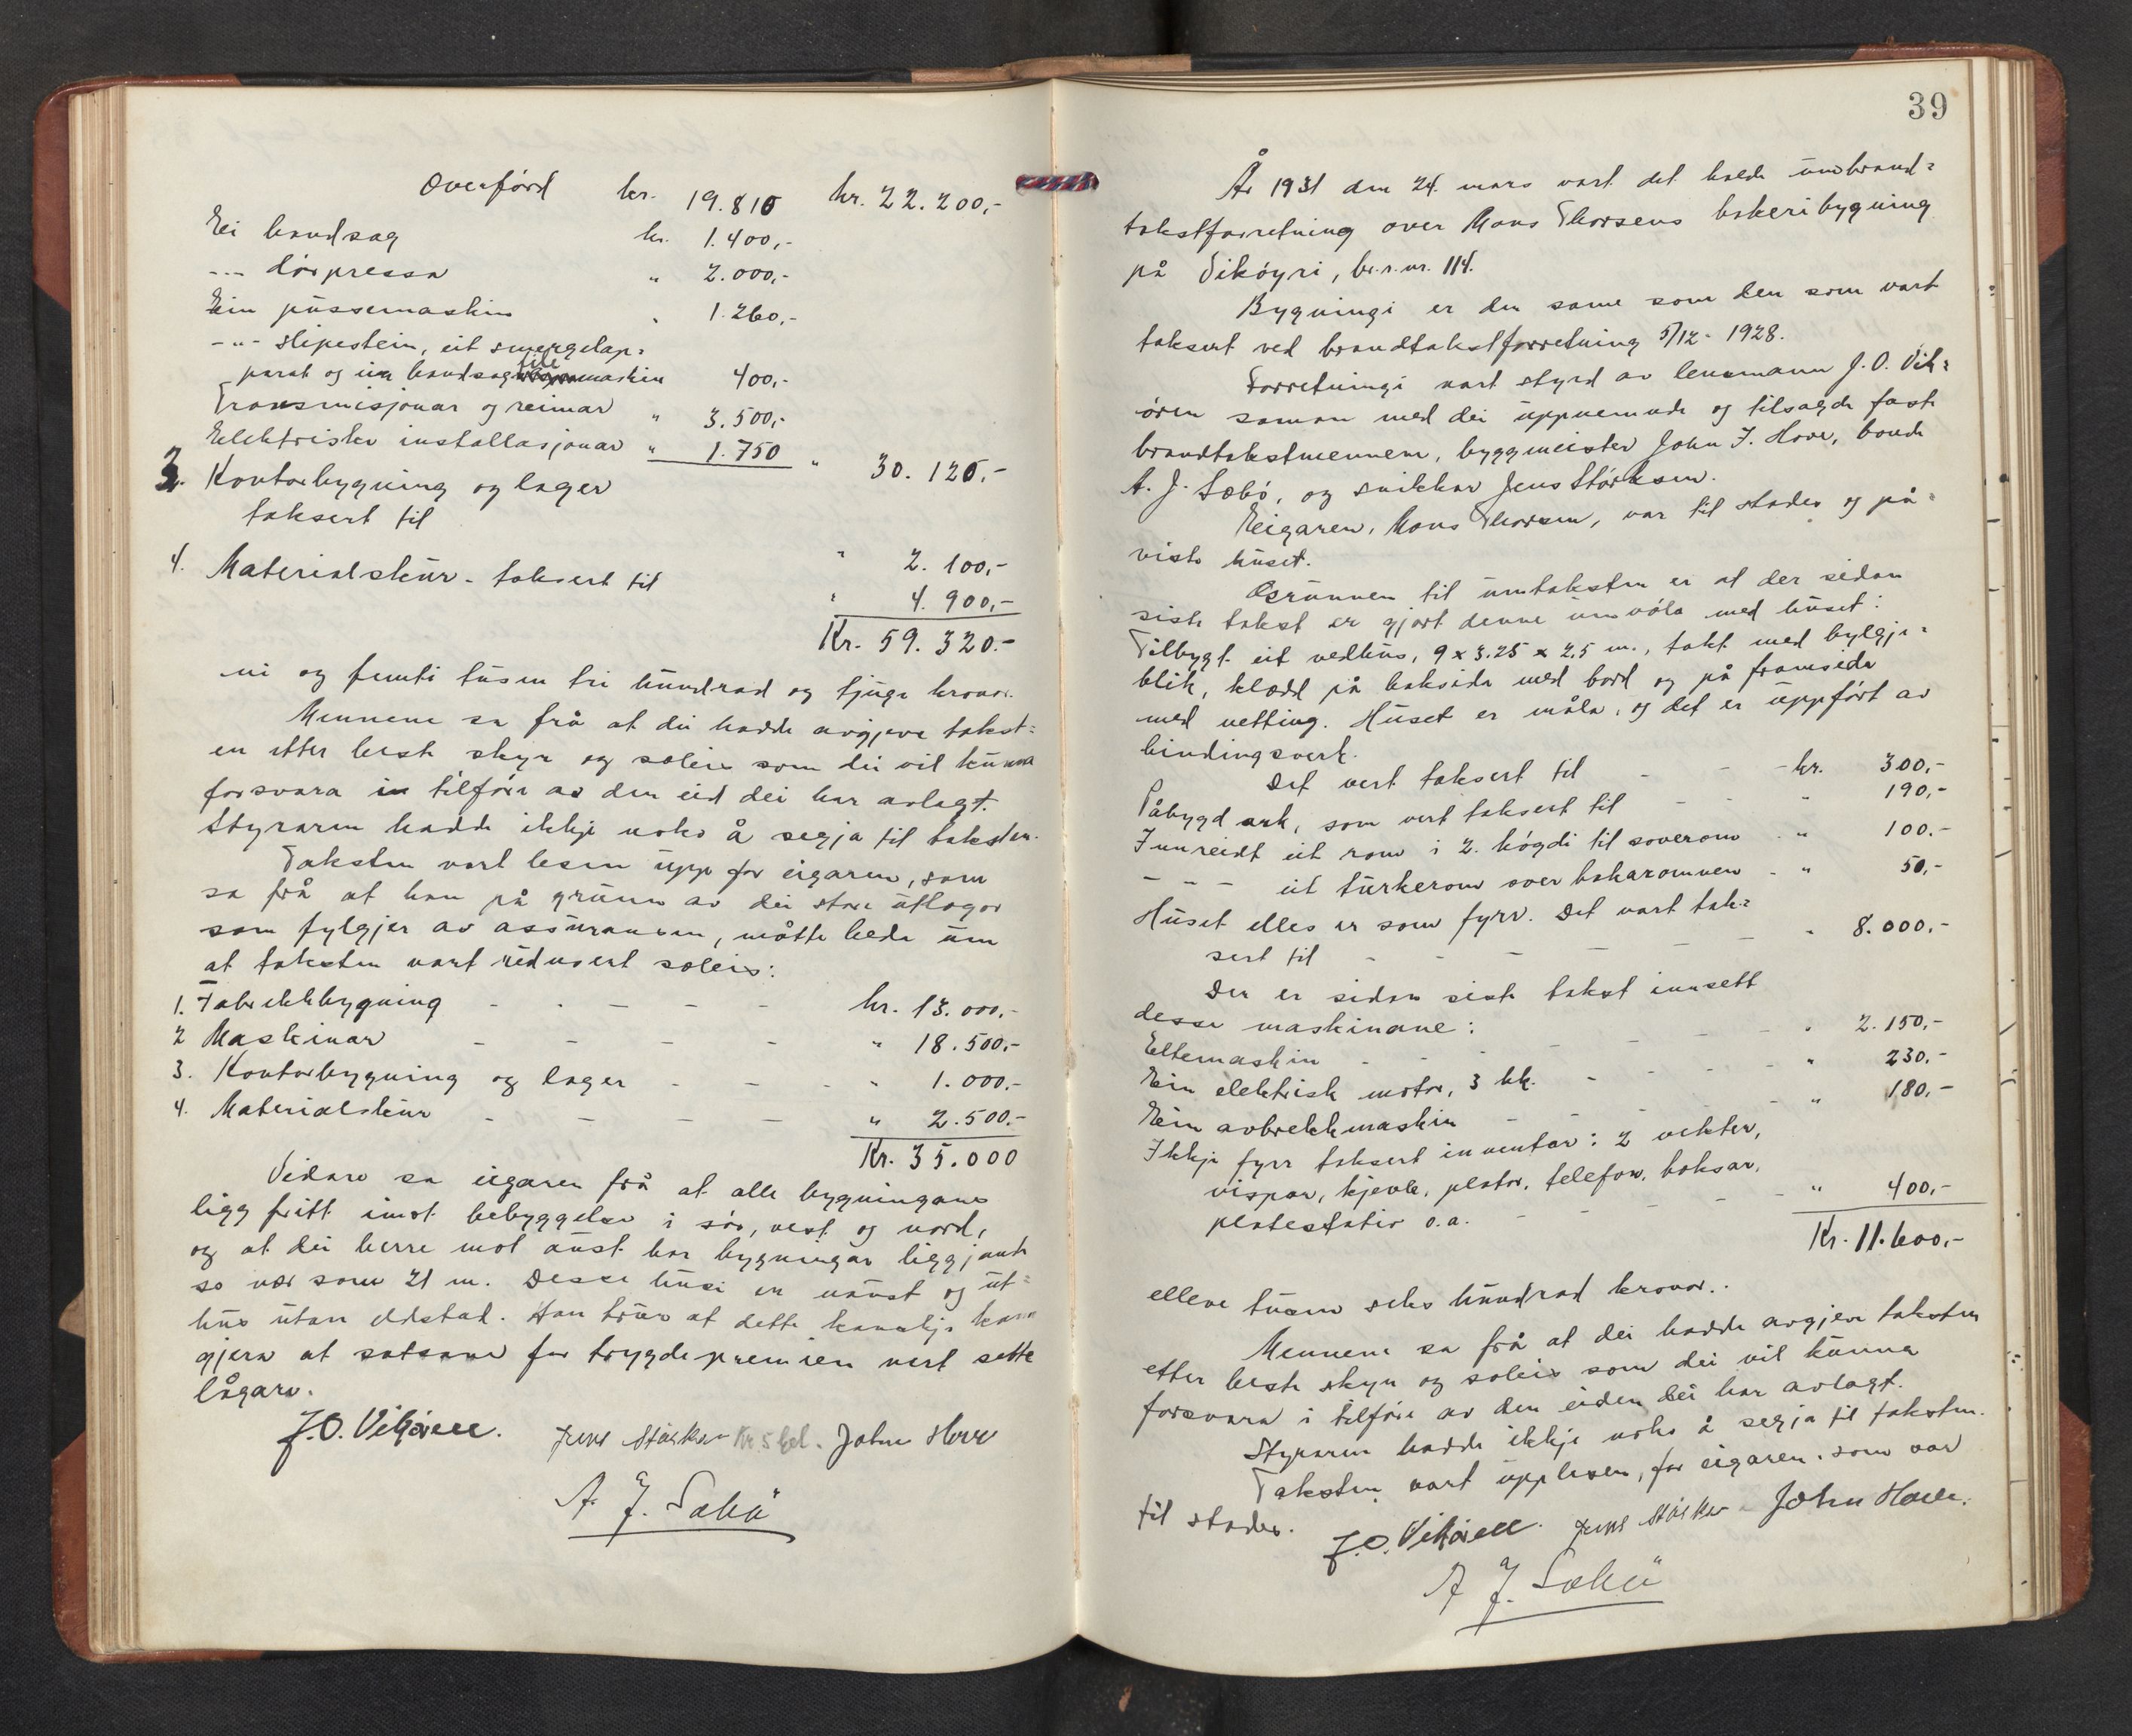 Overförd kr. 19.810 kr. 22.200,-
Ei bandsag kr. 1.400,-
-"- dörpressa " 2.000,-
Ein pussemaskin " 1.260,-
-"- slipestein, eit smergelap=
parat og ein bandsagfilemaskin 400,-
Transmisjonar og reimar " 3.500,-
Elektriske installasjonar " 1.750 " 30.120,-
3. Kontorbygning og lager
taksert til " 2.100,-
4. Materialskur - taksert til " 4.900,-
Kr. 59.320.-
ni og femti tusen tri hundrad og tjuge kronor.
Mennene sa frå at dei hadde avgjeve takst=
en etter beste skyn og soleis som dei vil kunna
forsvara in tilföre av den eid dei har avlagt.
Styraren hadde ikkje noko å segja til taksten.
Taksten vart lesen upp for eigaren, som
sa frå at han på grunn av dei store utlogor
som fylgjer av assuransen, måtte beda um
at taksten vart redusert soleis:
1. Fabrikkbygning - - - - - kr. 13.000.-
2 Maskinar - - - - " 18.500,-
3. Kontorbygning og lager - - - " 1.000.-
4. Materialskur - - - - " 2.500.-
Kr. 35.000
Vidare sa eigaren frå at alle bygningane
ligg fritt imot bebyggelse i sör, vest og nord,
og at dei berre mot aust har bygningar liggjande
so nær som 21 m. Desse husi er naust og ut=
hus utan eldstad. Han trur at dette kanskje kann
gjera at satsane for trygdepremien vert sette
lågare.
J.O. Vikören. Jens Störksen Kr. 5 bet. John Hove
A J. Sæbö
39
År 1931 den 24. mars vart det halde umbrand=
takstforretning over Mons Thorsens bakeribygning
på Viköyri, br.r.nr. 114.
Bygningi er den same som den som vart
taksert ved brandtakstforretning 5/12- 1928.
Forretningi vart styrd av lensmann J.O. Vik=
ören saman med dei uppnemnde og tilsagde faste
brandtakstmennene, byggmeister John J. Hove, bonde
A. J. Sæbö, og snikkar Jens Störksen.
Eigaren, Mons Thorsen, var til stades og på=
viste huset.
Grunnen til umtaksten er at der sidan
siste takst er gjort denne umvöla med huset:
Tilbygt eit vedhus, 9 x 3.25 x 2,5 m., takt med bylgje=
blik, klædd på baksida med bord og på framsida
med netting. Huset er måla, og det er uppfört av
bindingsverk.
Det vert taksert til - - - kr. 300,-
Påbygd ark, som vert taksert til - - " 190,-
Innreidt eit rom i 2. högdi til soverom - " 100.-
- - - eit turkerom over bakaromnen - " 50,-
Huset elles er som fyrr. Det vart tak=
sert til - - - - - " 8.000.-
Der er sidan siste takst innsett
desse maskinane:
Eltemaskin - - - - - " 2.150,-
Ein elektrisk motor, 3 hk. - - - " 230.-
Ein avbrekkmaskin - - - " 180,-
Ikkje fyrr taksert inventar: 2 vekter,
vispar, kjevle, plator, telefon, boksar,
platestativ o.a. - - - - " 400,-
Kr. 11.600,-
elleve tusen seks hundrad kronor.
Mennene sa frå at dei hadde avgjeve taksten
etter beste skyn og soleis som dei vil kunna
forsvara i tilföre av den eiden dei har avlagt.
Styraren hadde ikkje noko å segja til taksten.
Taksten vart upplesen, for eigaren, som var
til stades.
J.O. Vikören. Jens Störksen John Hove.
A J. Sæbö